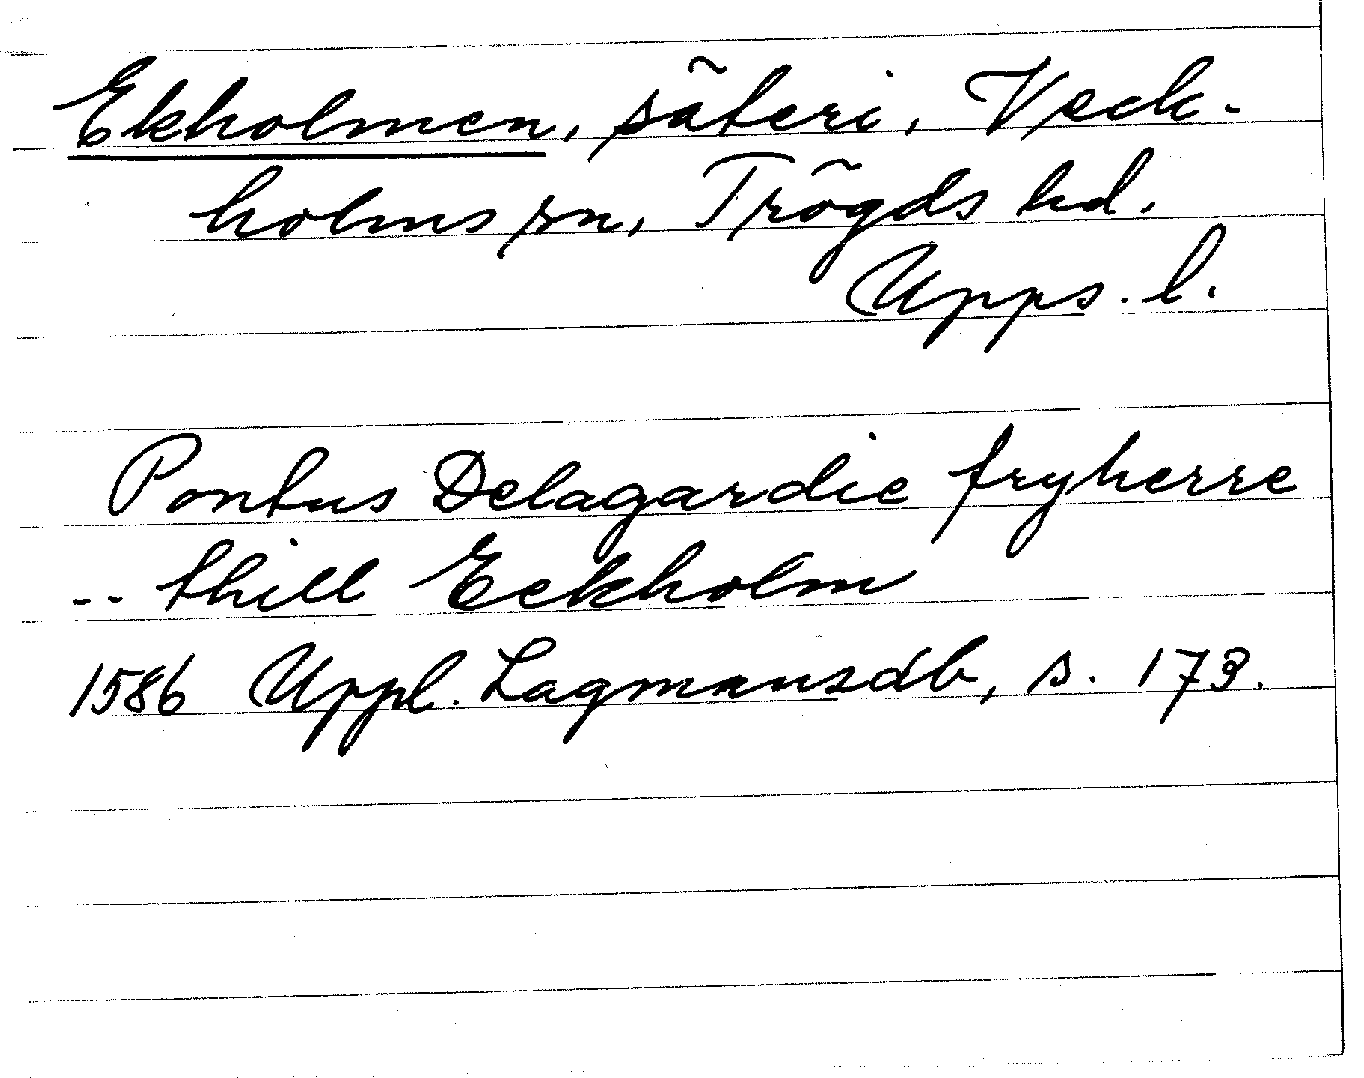 Ekholmen, säteri, Veck-
holms sn, Trögds hd.
Upps. l.
Pontus Delagardie fryherre
-- thill Eckholm
1586 Uppl. Lagmansdb, s. 173.